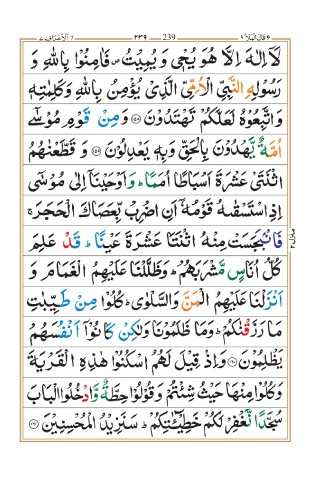 الاعراف ٧ ٢٣٩ 239 قال الملا ٩
لَاۤ اِلٰهَ اِلَّا هُوَ يُحْيٖ وَ يُمِيْتُ۪ فَاٰمِنُوْا بِاللّٰهِ وَ
رَسُوْلِهِ النَّبِيِّ الْاُمِّيِّ الَّذِيْ يُؤْمِنُ بِاللّٰهِ وَكَلِمٰتِهٖ
وَاتَّبِعُوْهُ لَعَلَّكُمْ تَهْتَدُوْنَ ﴿١٥٨﴾ وَمِنْ قَوْمِ مُوْسٰۤى
اُمَّةٌ يَّهْدُوْنَ بِالْحَقِّ وَبِهٖ يَعْدِلُوْنَ ﴿١٥٩﴾ وَ قَطَّعْنٰهُمُ
اثْنَتَيْ عَشْرَةَ اَسْبَاطًا اُمَمًا ؕ وَاَوْحَيْنَاۤ اِلٰى مُوْسٰۤى
اِذِ اسْتَسْقٰىهُ قَوْمُهٗۤ اَنِ اضْرِبْ بِّعَصَاكَ الْحَجَرَ ۚ
فَانْۢبَجَسَتْ مِنْهُ اثْنَتَا عَشْرَةَ عَيْنًا ؕ قَدْ عَلِمَ
كُلُّ اُنَاسٍ مَّشْرَبَهُمْ ؕ وَظَلَّلْنَا عَلَيْهِمُ الْغَمَامَ وَ
اَنْزَلْنَا عَلَيْهِمُ الْمَنَّ وَالسَّلْوٰى ؕ كُلُوْا مِنْ طَيِّبٰتِ
مَا رَزَقْنٰكُمْ ؕ وَمَا ظَلَمُوْنَا وَلٰكِنْ كَانُوْۤا اَنْفُسَهُمْ
يَظْلِمُوْنَ ﴿١٦٠﴾ وَاِذْ قِيْلَ لَهُمُ اسْكُنُوْا هٰذِهِ الْقَرْيَةَ
وَكُلُوْا مِنْهَا حَيْثُ شِئْتُمْ وَقُوْلُوْا حِطَّةٌ وَّادْخُلُوا الْبَابَ
سُجَّدًا نَّغْفِرْ لَكُمْ خَطِيْٓـٰٔتِكُمْ ؕ سَنَزِيْدُ الْمُحْسِنِيْنَ ﴿١٦١﴾